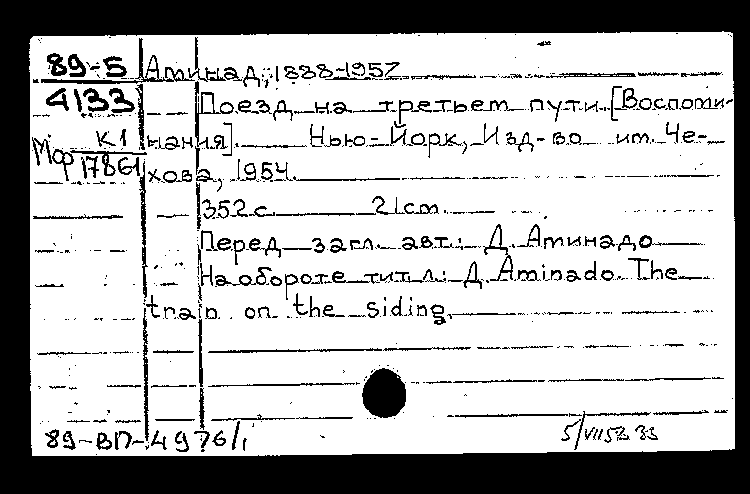 89-5 Аминад, 1888-1957
4133 Поезд на третьем пути. [Воспоми-
Мф К1 нания]. Нью-Йорк, Изд-во им. Че-
17861 хова, 1954.
352 с. 21 cm.
Перед загл. авт.: Д. Аминадо
На обороте тит. л.: Д. Aminado. The
train on the siding.
89-ВП-4976/1